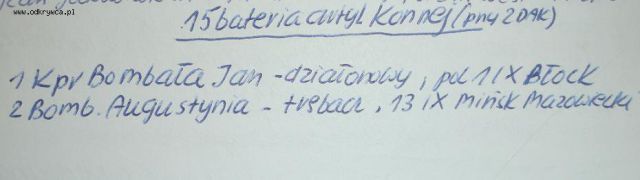 www.odkrywca.pl
15 bateria artyl Konnej (przy 2 DAK)
1 Kpr Bombała Jan - działonowy, pol 1 IX Błock
2 Bomb. Augustynia - trębacz, 13 IX Mińsk Mazowiecki